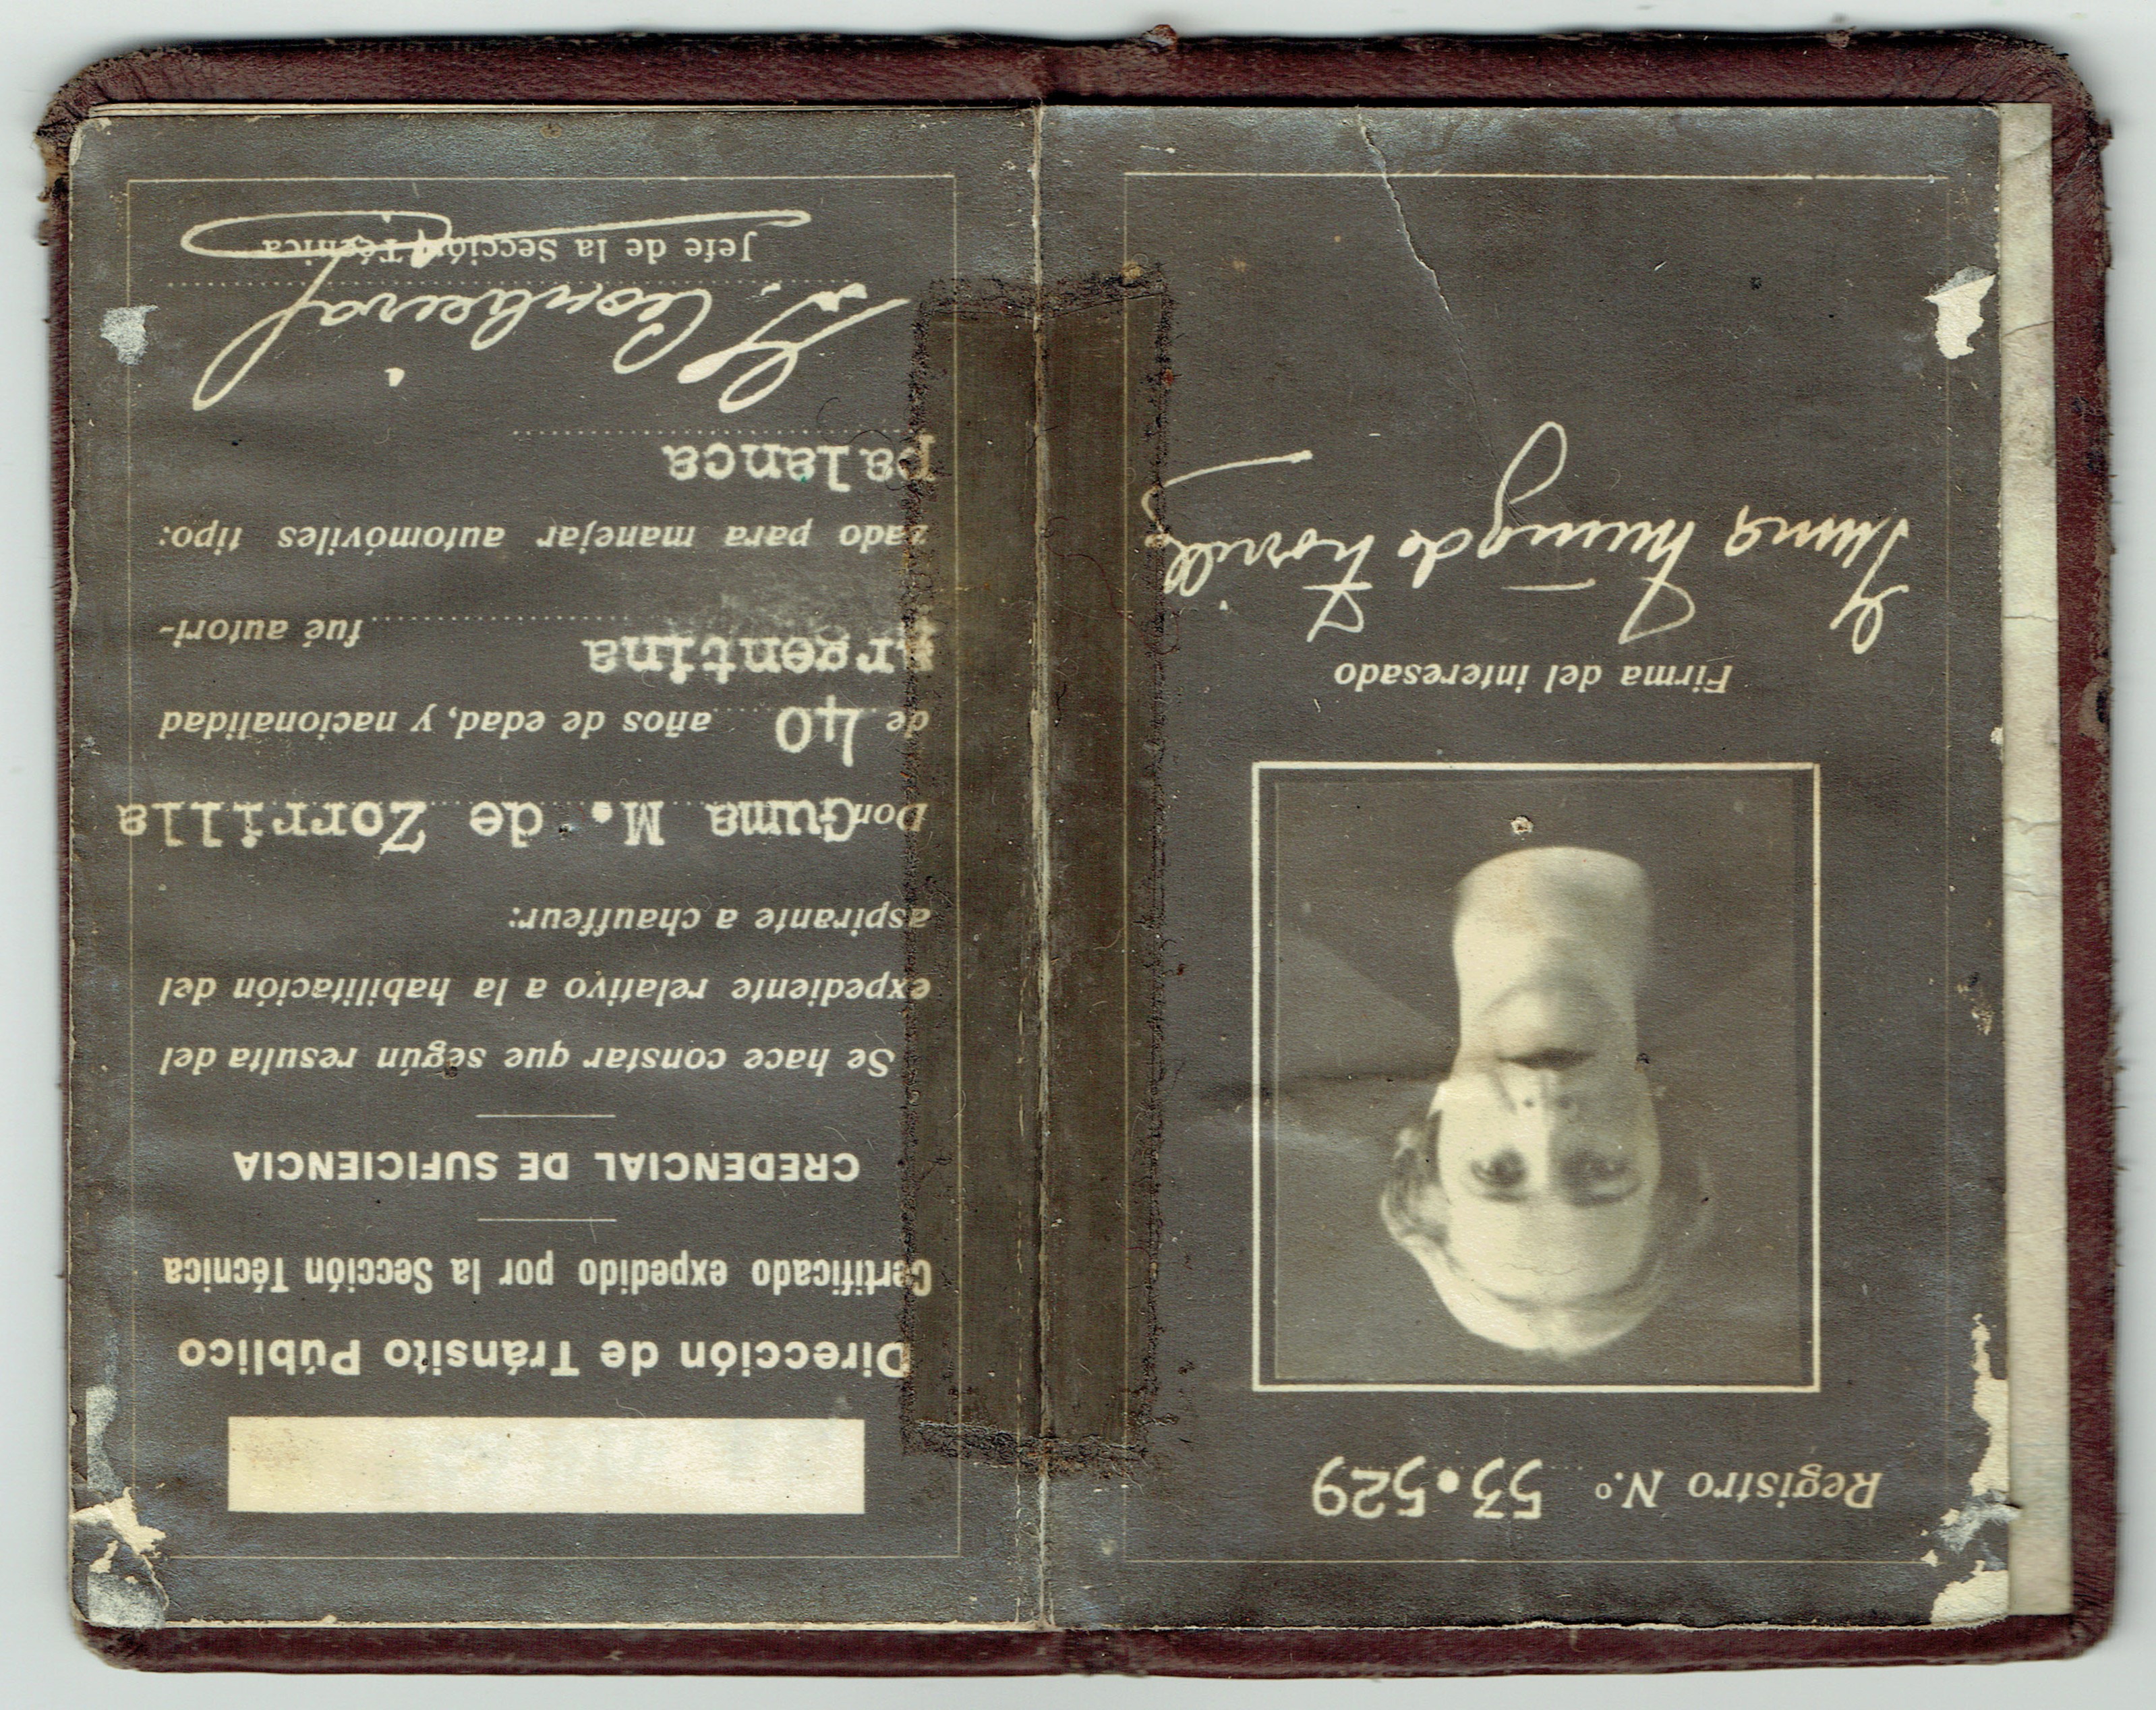 Registro N.º 53.529
Firma del interesado
Guma Muñoz de Zorrilla
Dirección de Tránsito Público
Certificado expedido por la Sección Técnica
CREDENCIAL DE SUFICIENCIA
Se hace constar que según resulta del
expediente relativo a la habilitación del
aspirante a chauffeur:
Don Guma M. de Zorrilla
de 40 años de edad, y nacionalidad
argentina fué autori-
zado para manejar automóviles tipo:
palanca
Jefe de la Sección Técnica